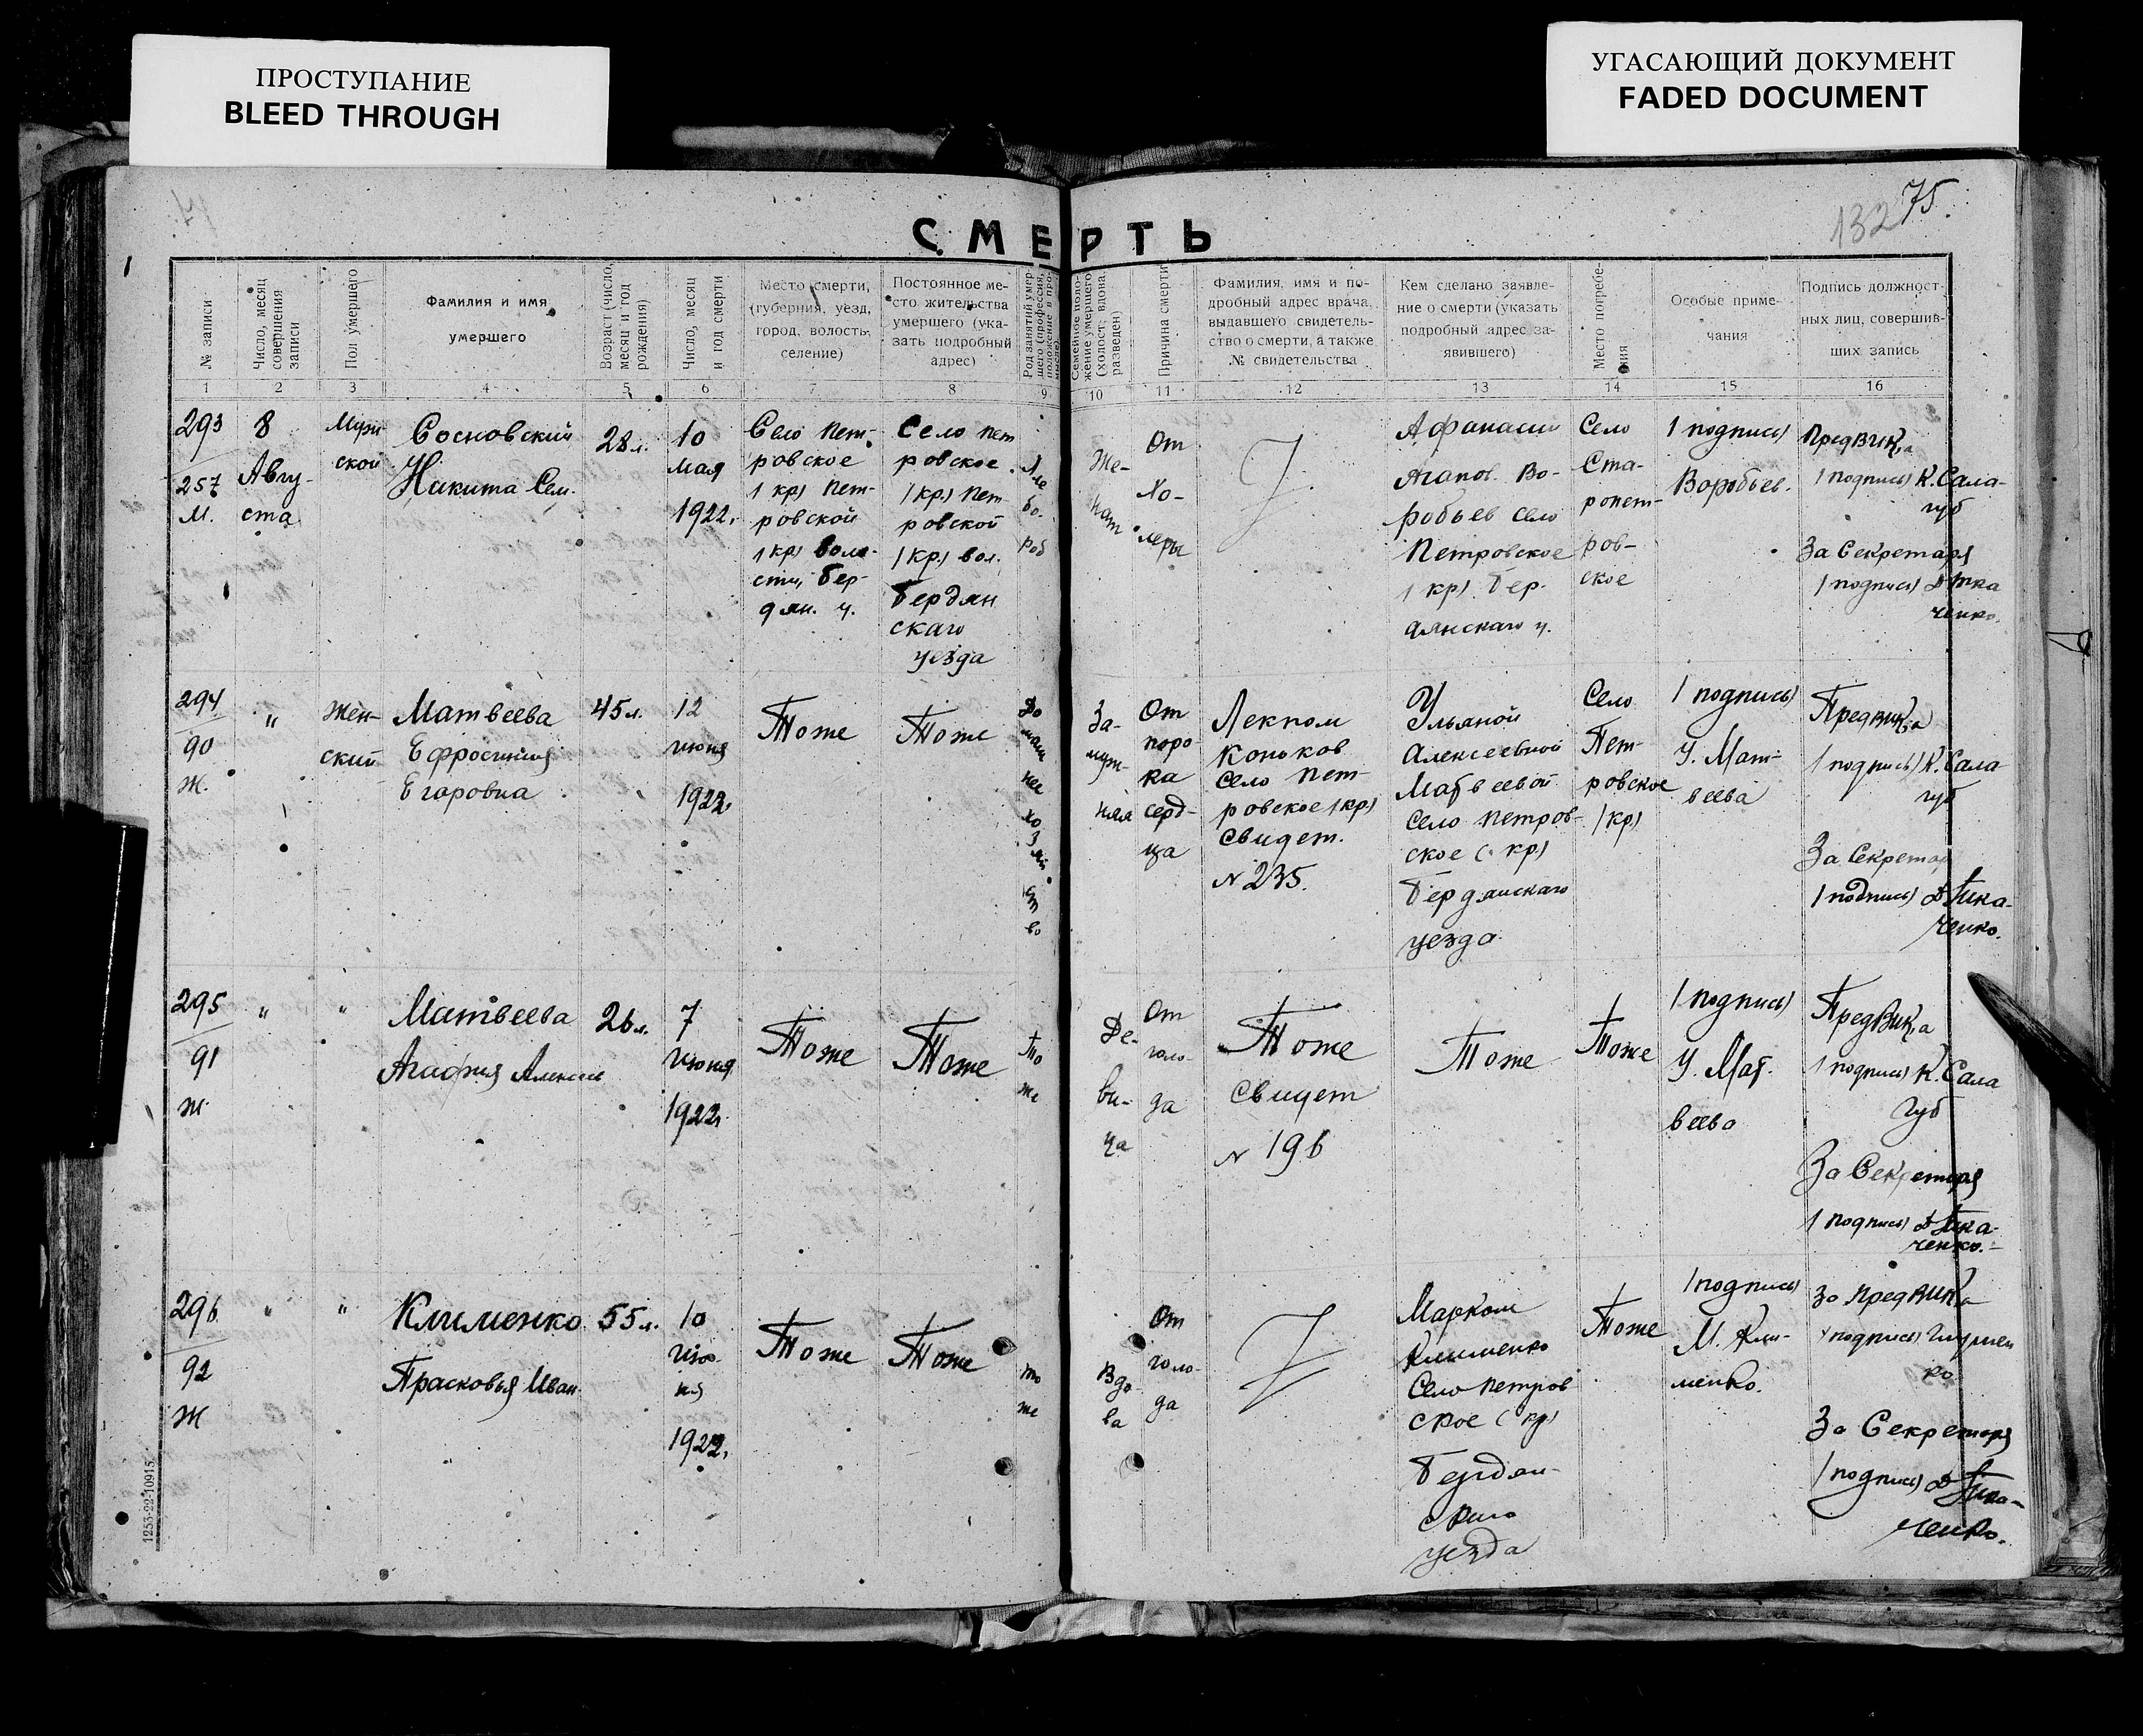 ПРОСТУПАНИЕ
BLEED THROUGH
УГАСАЮЩИЙ ДОКУМЕНТ
FADED DOCUMENT
132 75.
СМЕРТЬ
№ записи
Число, месяц
совершения
записи
Пол умершего
Фамилия и имя
умершего
Возраст (число,
месяц и год
рождения)
Число, месяц
и год смерти
Место смерти,
(губерния, уезд,
город, волость,
селение)
Постоянное ме-
сто жительства
умершего (ука-
зать подробный
адрес)
Род занятий умер-
шего (профессия,
положение в про-
мысле)
Семейное поло-
жение умершего
(холост; вдова,
разведен)
Причина смерти
Фамилия, имя и по-
дробный адрес врача,
выдавшего свидетель-
ство о смерти, а также
№ свидетельства
Кем сделано заявле-
ние о смерти (указать
подробный адрес за-
явившего)
Место погребе-
ния
Особые приме-
чания
Подпись должност-
ных лиц, совершив-
ших запись
1 2 3 4 5 6 7 8 9 10 11 12 13 14 15 16
293
257
М.
8
Авгу-
ста
Муж
ской
Сосновский
Никита Сем.
28 л.
10
мая
1922.
Село Пет-
ровское
(кр) Пет-
ровской
(кр) воло-
сти, Бер-
дян. у.
Село Пет
ровское
(кр.) Пет
ровской
(кр) вол.
Бердян
скаго
уезда
Хле
бо-
роб
Же-
нат
От
Хо-
леры
Афанасий
Агапов. Во-
робьев село
Петровское
(кр) Бер-
дянскаго у.
Село
Ста-
ропет-
ров-
ское
(подпись)
Воробьев.
ПредВИК,а
(подпись) К. Сала-
губ
За Секретаря
(подпись) Д Тка
ченко.
294
90
Ж.
"
Жен-
ский
Матвеева
Ефросиния
Егоровна
45 л.
12
июня
1922.
Тоже
Тоже
До
маш
нее
хо
зяй
ст
во
За-
муж-
няя
От
поро
ка
серд-
ца
Лекпом
Коньков
село Пет-
ровское (кр)
Свидет.
№ 235.
Ульяной
Алексеевной
Матвеевой
село Петров-
ское (кр)
Бердянскаго
уезда.
Село
Пет-
ровское
(кр)
(подпись)
У. Мат-
веева
ПредВИК,а
(подпись) К. Сала
губ
За Секретар
(подпись) Д Тка-
ченко.
295
91
Ж.
" "
Матвеева
Агафия Алексее
26 л.
7
июня
1922.
Тоже
Тоже
То
же
Де-
ви-
ца
От
голо-
да
Тоже
Свидет
№ 196
Тоже
Тоже
(подпись)
У. Мат-
веева
ПредВИК,а
(подпись) К. Сала
губ
За Секретаря
(подпись) Д Тка-
ченко.-
296
92
Ж
" "
Клименко
Прасковья Иван.
55 л.
10
Июн-
ня
1922.
Тоже
Тоже
то
же
Вдо-
ва
От
голо-
да
Марком
Клименко
Село Петров
ское (кр)
Бердян-
скаго
уезда
Тоже
(подпись)
М. Кли-
менко.
За ПредВИК,а
За Секретаря
(подпись) Д Тка-
ченко.
1253-22-10915.